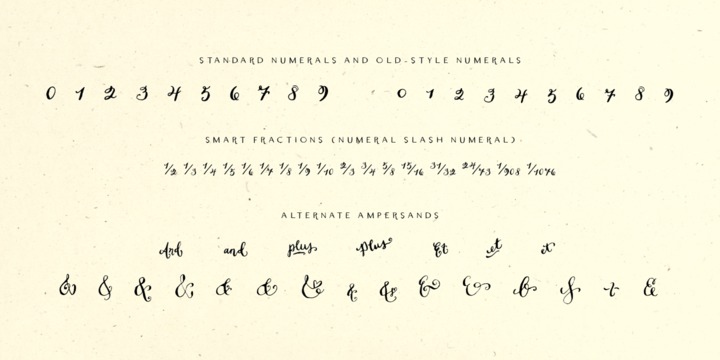 STANDARD NUMERALS AND OLD-STYLE NUMERALS
0 1 2 3 4 5 6 7 8 9 0 1 2 3 4 5 6 7 8 9
SMART FRACTIONS (NUMERAL SLASH NUMERAL)
1/2 1/3 1/4 1/5 1/6 1/7 1/8 1/9 1/10 2/3 3/4 5/8 15/16 31/32 24/43 1/908 1/1076
ALTERNATE AMPERSANDS
And and plus plus Et et et
& & & & & & & & & & & & & & &